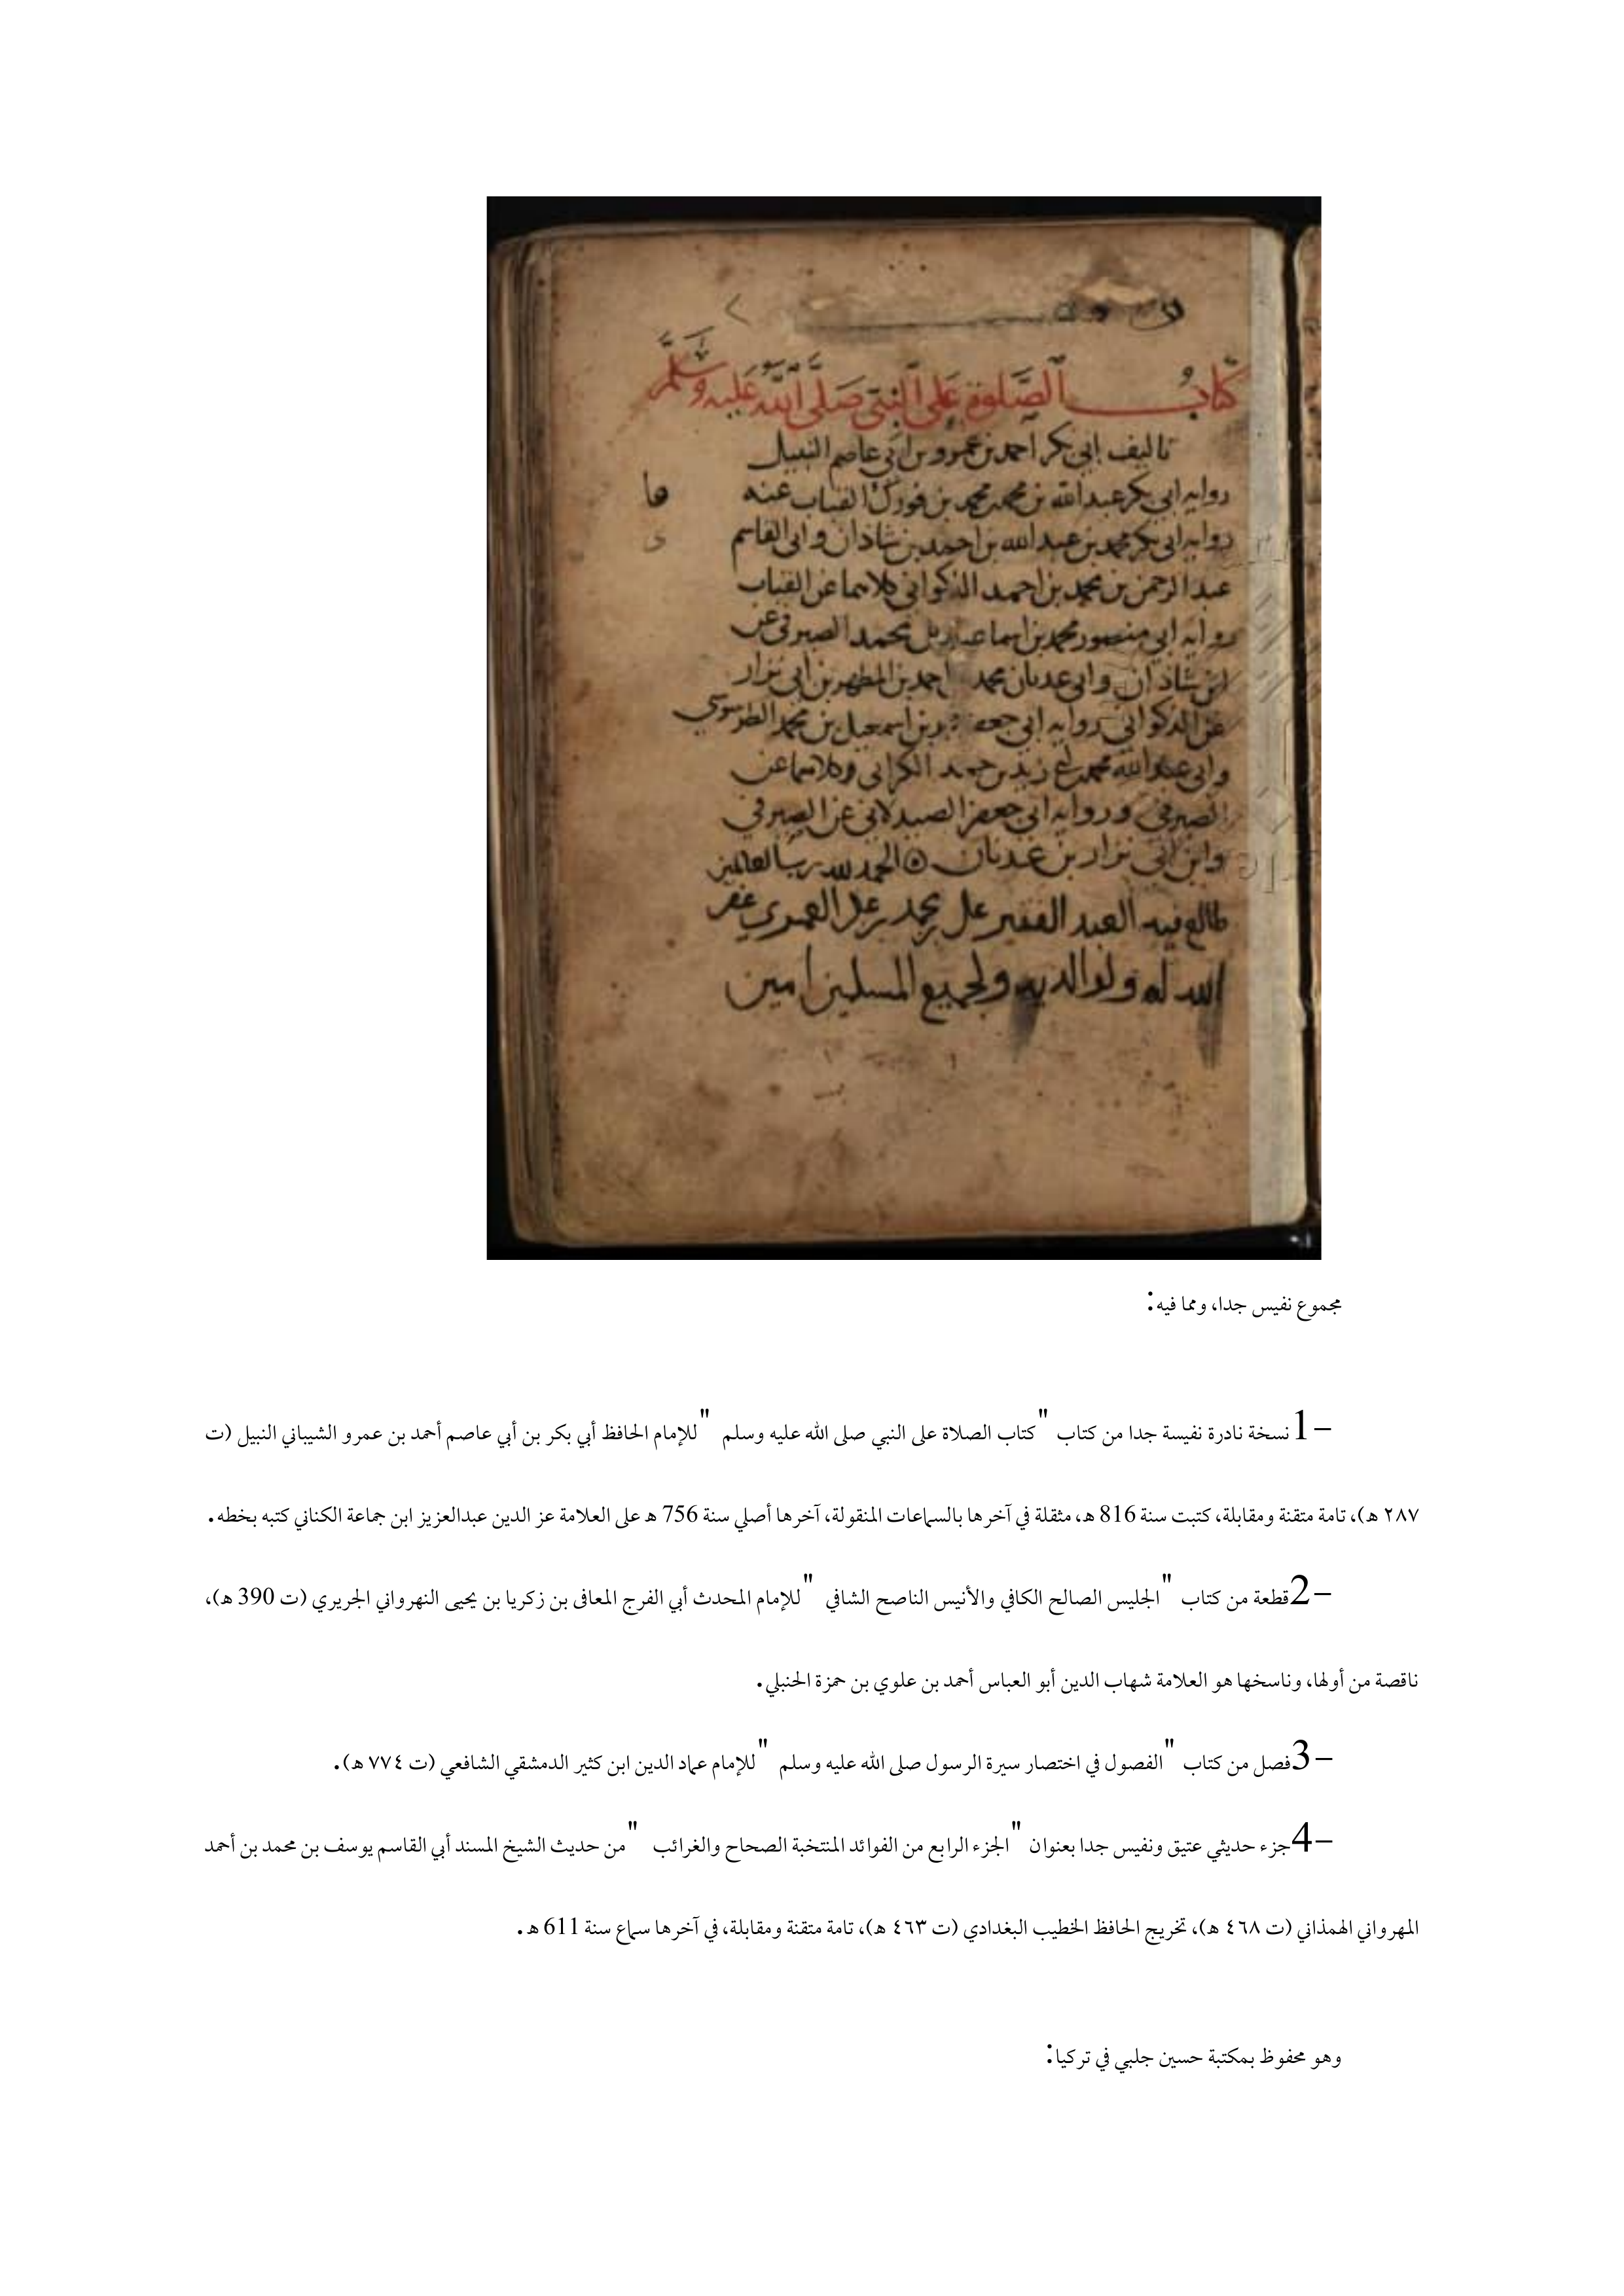 كتاب الصلوة على النبي صلى الله عليه وسلم
تاليف ابي بكر احمد بن عمرو بن ابي عاصم النبيل
روايه ابي بكر عبد الله بن محمد بن محمد بن فورك القباب عنه
روايه ابي بكر محمد بن عبد الله بن احمد بن شاذان وابي القاسم
عبد الرحمن بن محمد بن احمد الذكواني كلاهما عن القباب
روايه ابي منصور محمد بن اسماعيل بن محمد الصيرفي عن
ابن شاذان وابي عدنان محمد احمد بن المطهر بن ابي نزار
عن الذكواني روايه ابي جعفر بن اسمعيل بن محمد الطرسوسي
وابي عبد الله محمد بن ابي زيد بن حمد الكراني وكلاهما عن
الصيرفي وروايه ابي جعفر الصيدلاني عن الصيرفي
وابن ابي نزار بن عدنان الحمد لله رب العالمين
طالع فيه العبد الفقير علي بن محمد بن علي العمري غفر
الله له ولوالديه ولجميع المسلمين امين
مجموع نفيس جدا، ومما فيه:
-1نسخة نادرة نفيسة جدا من كتاب "كتاب الصلاة على النبي صلى الله عليه وسلم "للإمام الحافظ أبي بكر بن أبي عاصم أحمد بن عمرو الشيباني النبيل (ت
٢٨٧ هـ)، تامة متقنة ومقابلة، كتبت سنة 816 هـ، مثقلة في آخرها بالسماعات المنقولة، آخرها أصلي سنة 756 هـ على العلامة عز الدين عبدالعزيز ابن جماعة الكناني كتبه بخطه.
-2قطعة من كتاب "الجليس الصالح الكافي والأنيس الناصح الشافي "للإمام المحدث أبي الفرج المعافى بن زكريا بن يحيى النهرواني الجريري (ت 390 هـ)،
ناقصة من أولها، وناسخها هو العلامة شهاب الدين أبو العباس أحمد بن علوي بن حمزة الحنبلي.
-3فصل من كتاب "الفصول في اختصار سيرة الرسول صلى الله عليه وسلم "للإمام عماد الدين ابن كثير الدمشقي الشافعي (ت ٧٧٤ هـ).
-4جزء حديثي عتيق ونفيس جدا بعنوان "الجزء الرابع من الفوائد المنتخبة الصحاح والغرائب "من حديث الشيخ المسند أبي القاسم يوسف بن محمد بن أحمد
المهرواني الهمذاني (ت ٤٦٨ هـ)، تخريج الحافظ الخطيب البغدادي (ت ٤٦٣ هـ)، تامة متقنة ومقابلة، في آخرها سماع سنة 611 هـ.
وهو محفوظ بمكتبة حسين جلبي في تركيا: